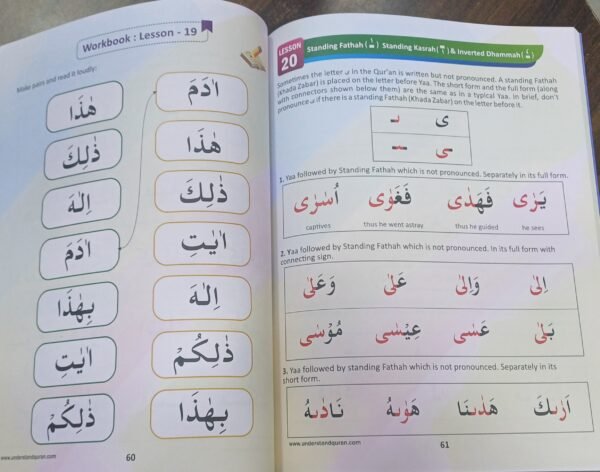 Workbook : Lesson - 19
Make pairs and read it loudly:
هٰذَا
ذٰلِكَ
اِلٰهَ
اٰدَمَ
بِهٰذَا
اٰيٰتِ
ذٰلِكُمْ
اٰدَمَ
هٰذَا
ذٰلِكَ
اٰيٰتِ
اِلٰهَ
ذٰلِكُمْ
بِهٰذَا
www.understandquran.com
60
LESSON
20
Standing Fathah ( ـٰ ) Standing Kasrah ( ـٖ ) & Inverted Dhammah ( ـٗ )
Sometimes the letter ى in the Qur'an is written but not pronounced. A standing Fathah
(Khada Zabar) is placed on the letter before Yaa. The short form and the full form (along
with connectors shown below them) are the same as in a typical Yaa. In brief, don't
pronounce ى if there is a standing Fathah (Khada Zabar) on the letter before it.
ى
1. Yaa followed by Standing Fathah which is not pronounced. Separately in its full form.
يَرٰى فَهَدٰى فَغَوٰى اُسٰرٰى
he sees thus he guided thus he went astray captives
2. Yaa followed by Standing Fathah which is not pronounced. In its full form with
connecting sign.
اِلىٰ وَاِلىٰ عَلىٰ وَعَلىٰ
بَلىٰ عَسٰى عِيْسٰى مُوْسٰى
3. Yaa followed by standing Fathah which is not pronounced. Separately in its
short form.
اَرٰىكَ هَدٰىنَا هَوٰىهُ نَادٰىهُ
www.understandquran.com
61